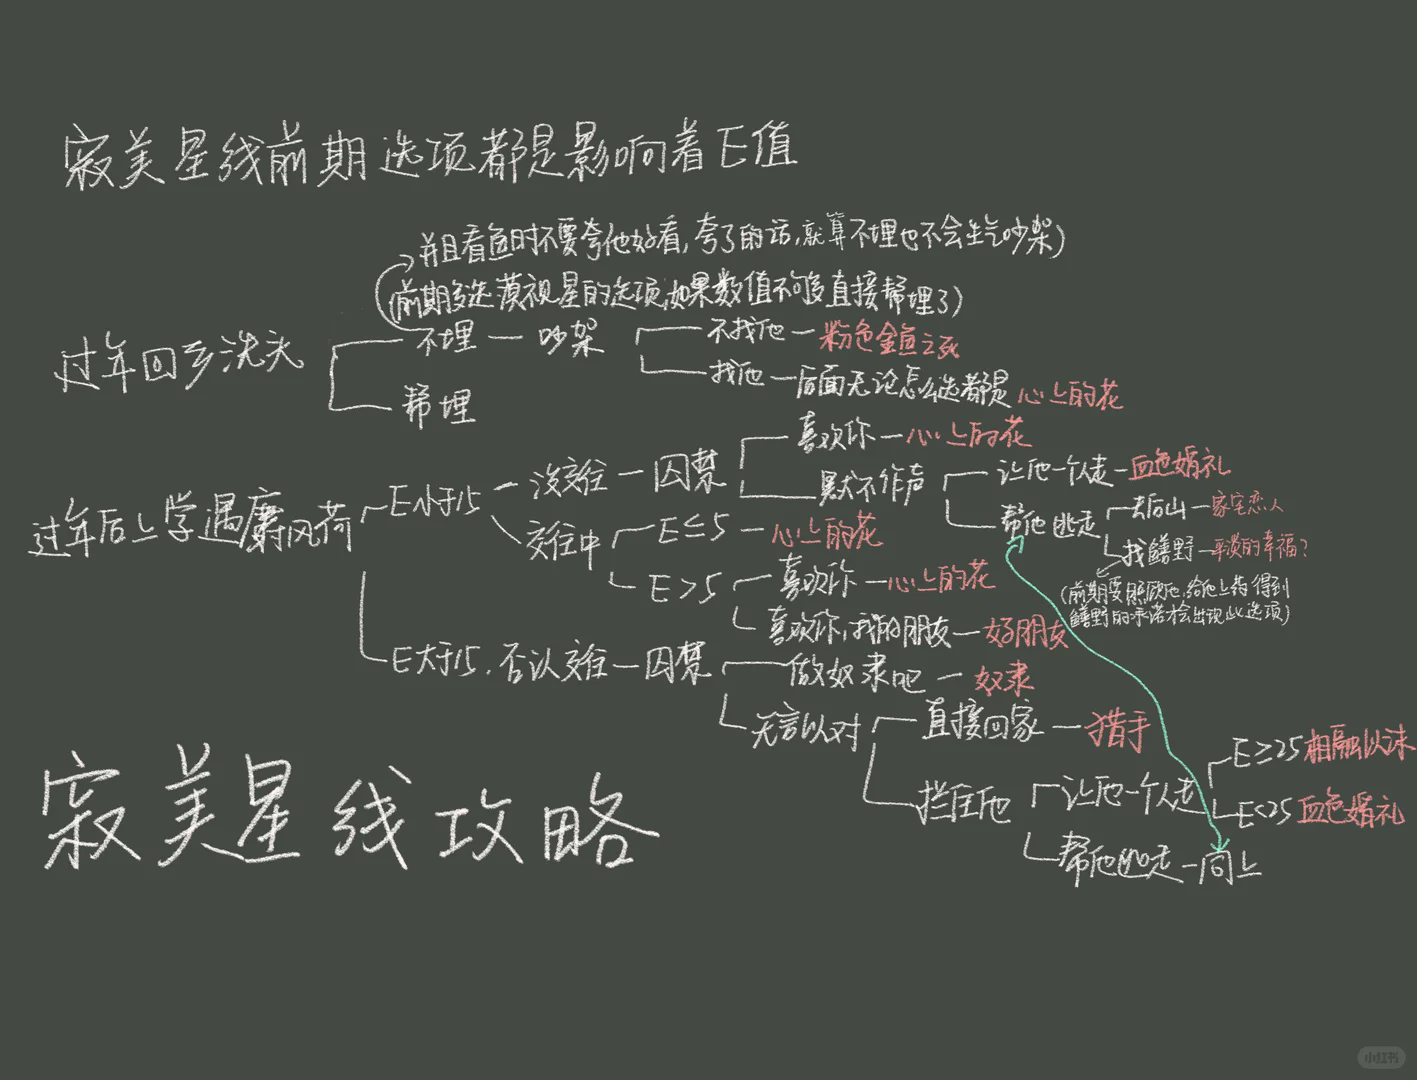 寂美星线前期选项都是影响着E值
并且看鱼时不要夸他好看,夸了的话,就算不埋也不会生气吵架)
(前期多选漠视星的选项,如果数值不够多直接帮埋了)
过年回乡洗头
不埋 — 吵架
不找他 — 粉色金鱼之死
找他 — 后面无论怎么选都是 心上的花
帮埋
过年后上学遇廉风荷
E小于15
没交往 — 囚禁
喜欢你 — 心上的花
默不作声
让他一个人走 — 血色婚礼
帮他逃走
去后山 — 家宅恋人
找鳝野 — 平淡的幸福?
(前期要照顾他,给他上药得到
鳝野的承诺才会出现此选项)
交往中
E≤5 — 心上的花
E>5
喜欢你 — 心上的花
喜欢你,我的朋友 — 好朋友
E大于15,否认交往 — 囚禁
做奴隶吧 — 奴隶
无言以对
直接回家 — 猎手
拦住他
让他一个人走
E≥25 相融以沫
E<25 血色婚礼
帮他逃走 — 同上
寂美星线攻略
小红书